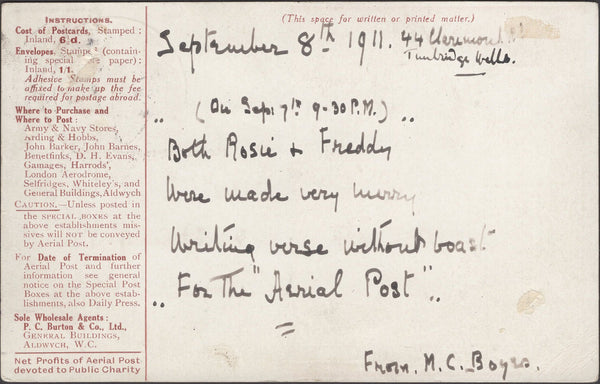 INSTRUCTIONS.
Cost of Postcards, Stamped:
Inland, 6d.
Envelopes, Stamped (contain-
ing special paper):
Inland, 1/1.
Adhesive Stamps must be
affixed to make up the fee
required for postage abroad.
Where to Purchase and
Where to Post:
Army & Navy Stores,
Arding & Hobbs,
John Barker, John Barnes,
Benetfinks, D. H. Evans,
Gamages, Harrods',
London Aerodrome,
Selfridges, Whiteley's, and
General Buildings, Aldwych
CAUTION.—Unless posted in
the SPECIAL BOXES at the
above establishments mis-
sives will NOT be conveyed
by Aerial Post.
For Date of Termination of
Aerial Post and further
information see general
notice on the Special Post
Boxes at the above estab-
lishments, also Daily Press.
Sole Wholesale Agents:
P. C. Burton & Co., Ltd.,
GENERAL BUILDINGS,
ALDWYCH, W.C.
Net Profits of Aerial Post
devoted to Public Charity
(This space for written or printed matter.)
September 8th 1911. 44 Claremont Rd
Tunbridge Wells.
(On Sep: 7th 9-30 P.M.)
Both Rosie & Freddy
Were made very merry
Writing verse without boast
For The "Aerial Post"
From, M. C. Boyes.